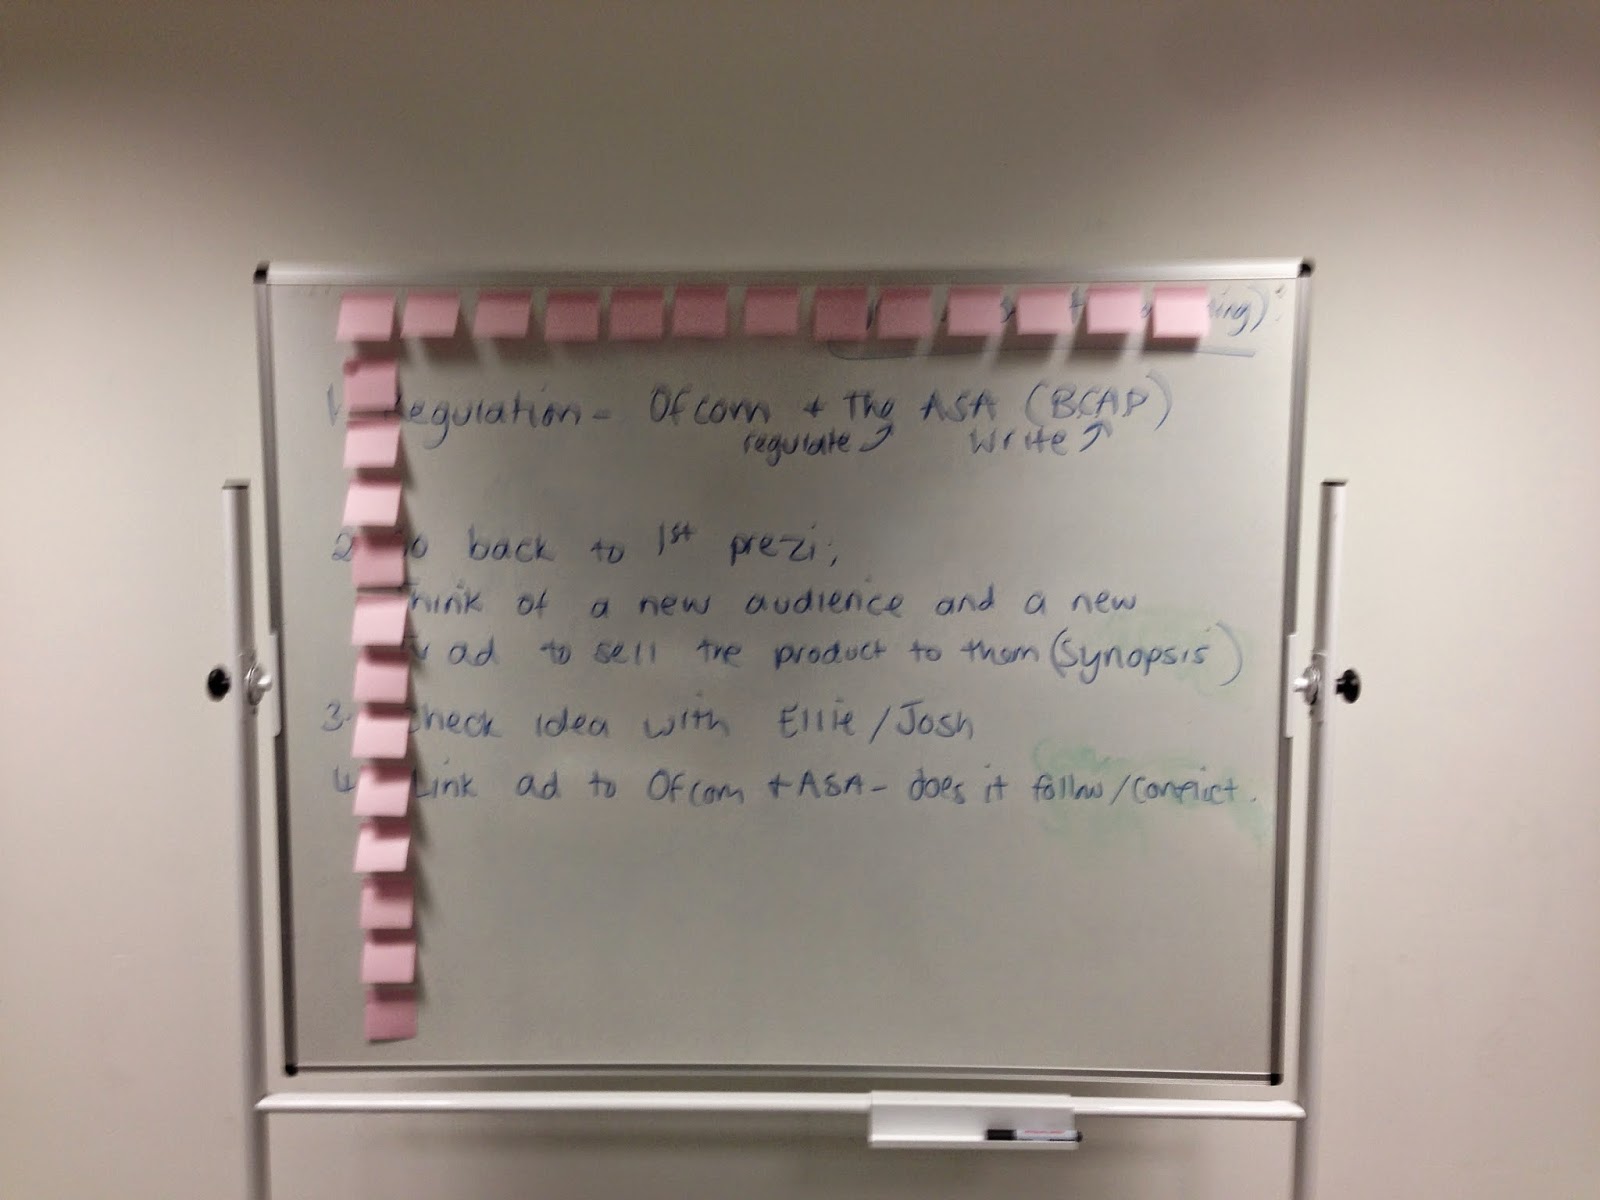 ting):
1. Regulation - Ofcom + The ASA (BCAP)
regulate write
2. Go back to 1st prezi;
Think of a new audience and a new
TV ad to sell the product to them (Synopsis)
3. Check idea with Ellie/Josh
4. Link ad to Ofcom + ASA - does it follow/conflict.